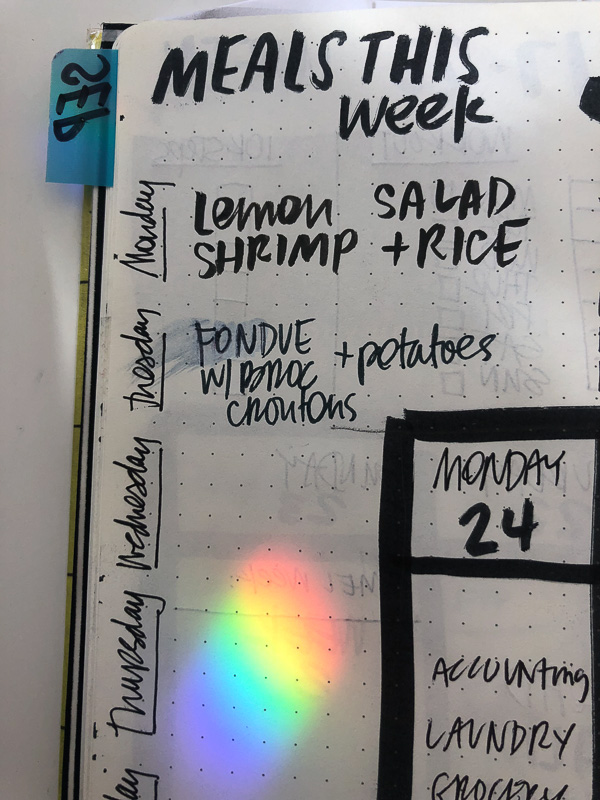 MEALS THIS
week
Monday
Lemon SALAD
SHRIMP + RICE
Tuesday
FONDUE
W/ BROC + potatoes
croutons
Wednesday
Thursday
day
MONDAY
24
ACCOUNTING
LAUNDRY
GROCERY